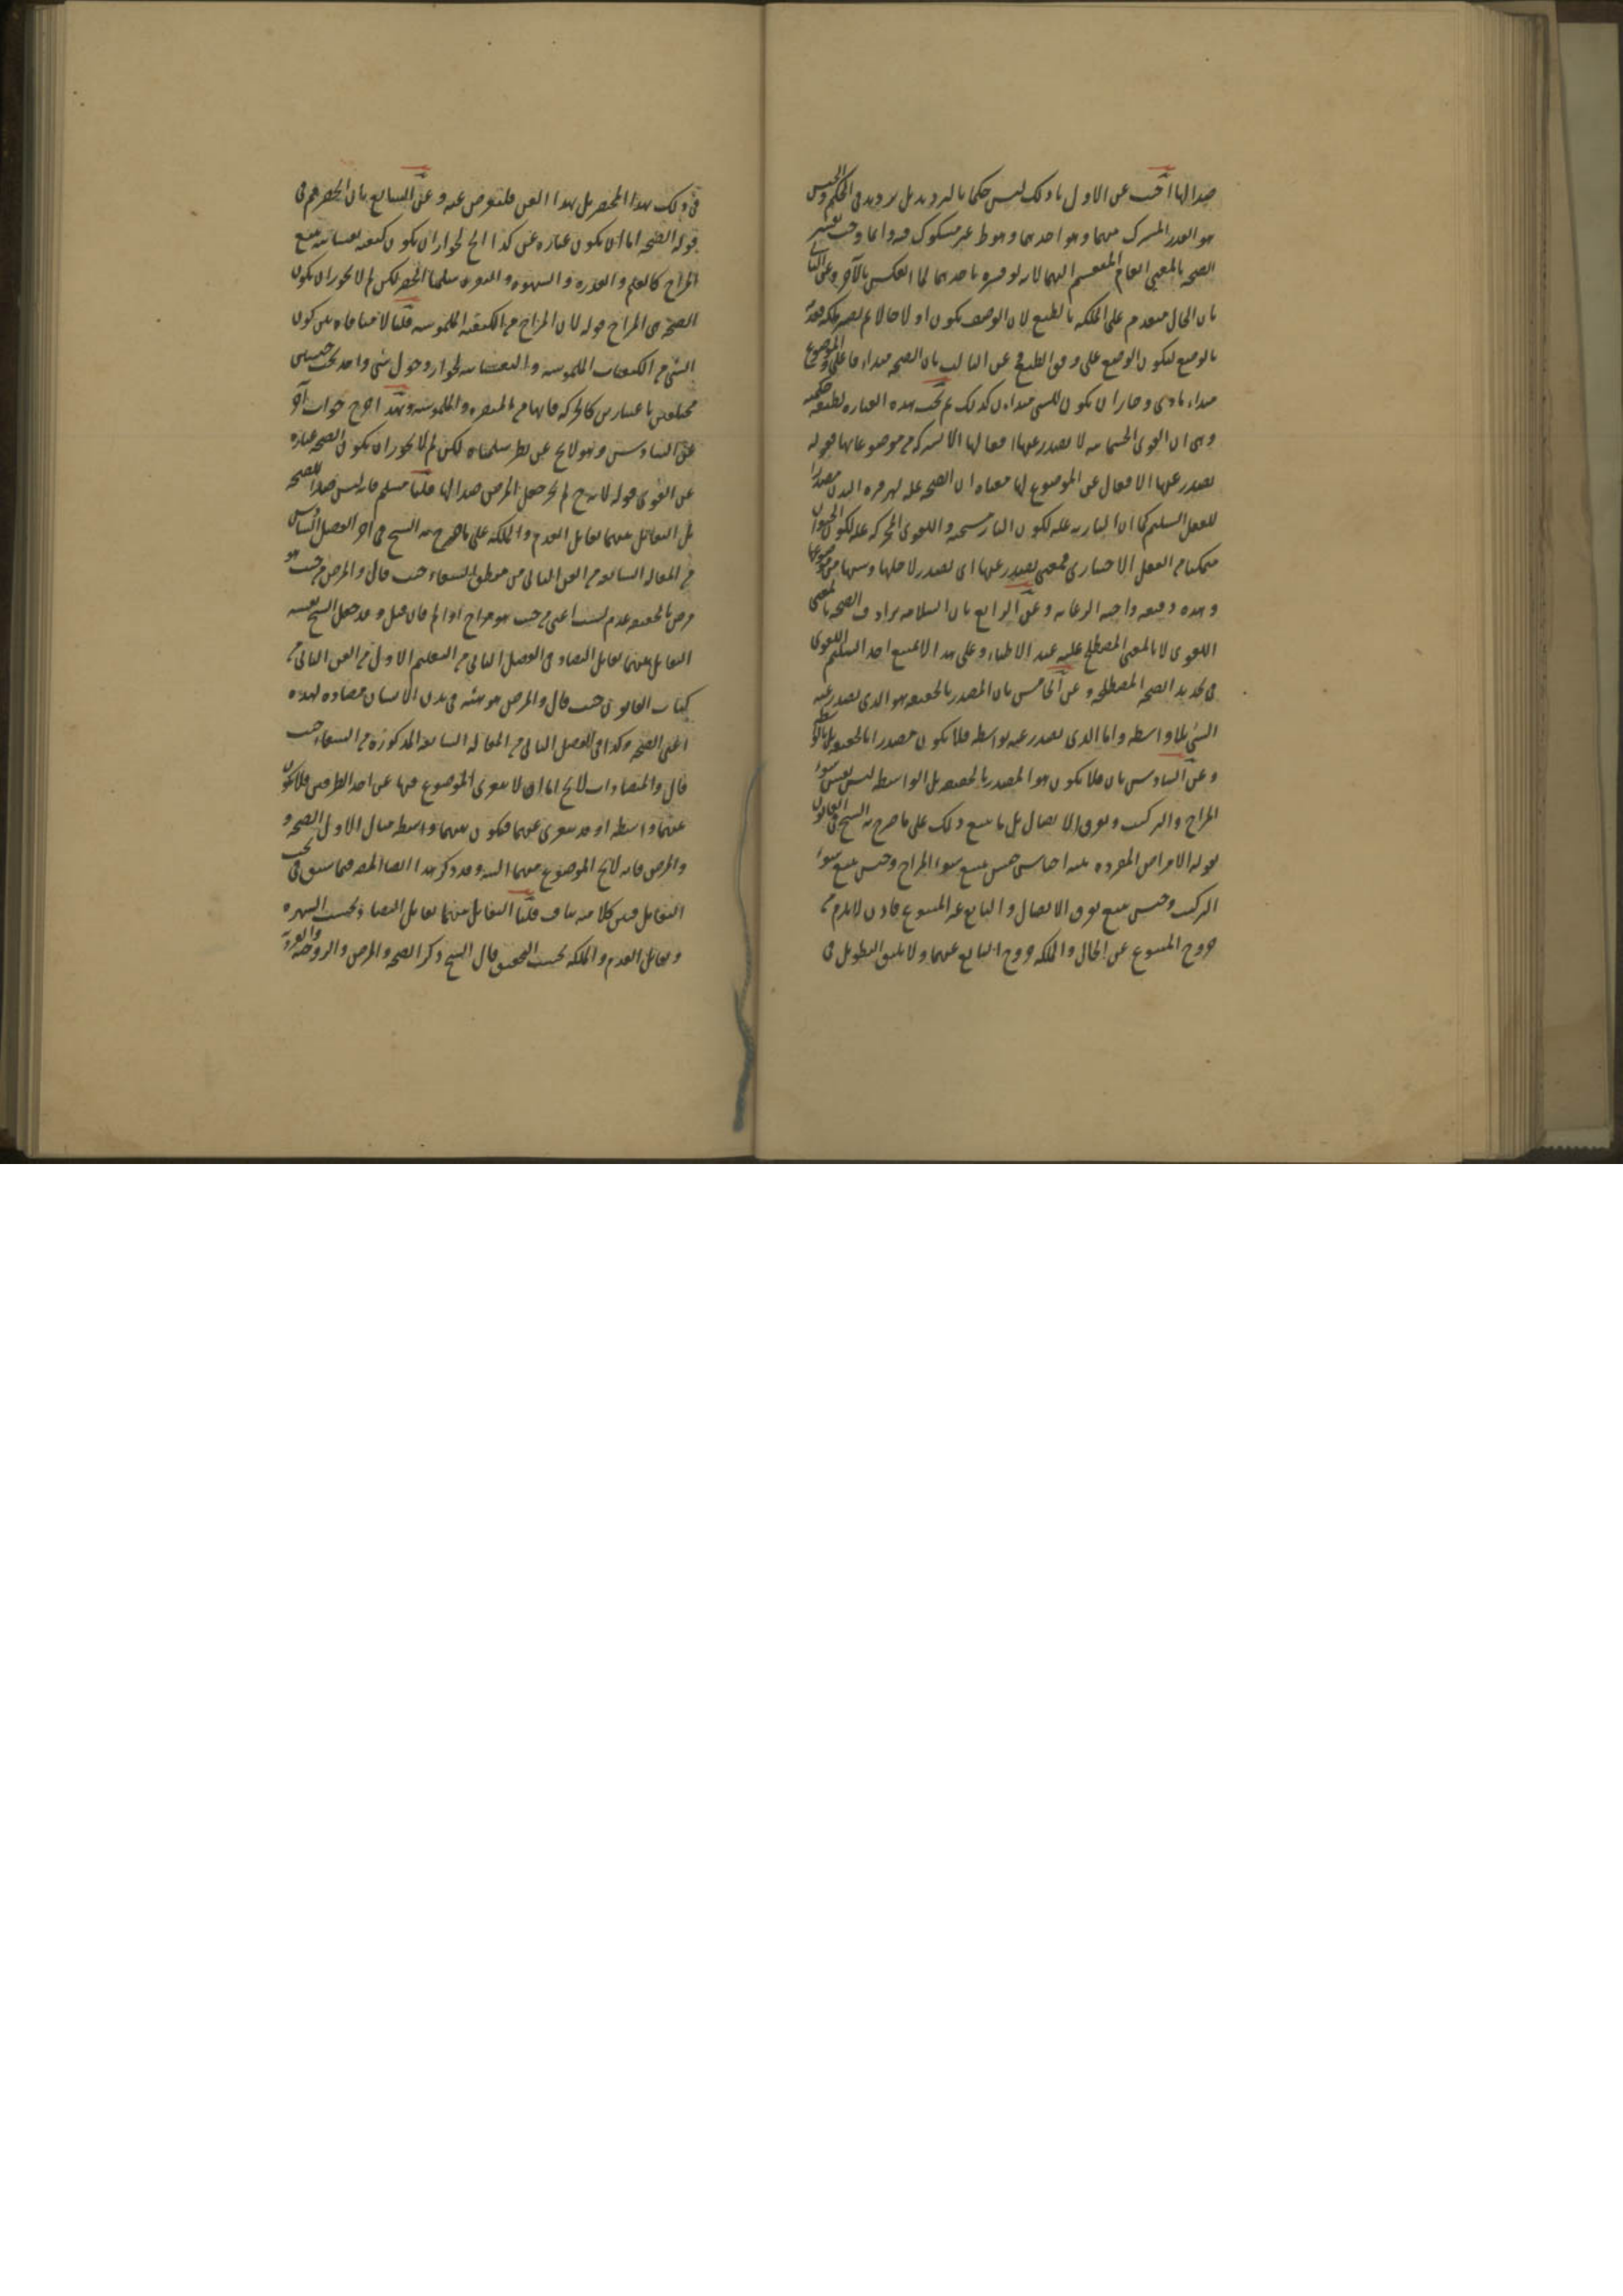 ضدا لها اجيب عن الاول بان ذلك ليس حكما بالترديد بل ترديد في الحكم والجنس
هو القدر المشترك بينهما وهو احدهما وهو ط غير مشكوك فيه وانما وجب تفسير
الصحة بالمعنى العام المنقسم اليهما لانه لو فسره باحدهما لما انعكس بالآخر وعن الثاني
بان الحال متقدم على الملكة بالطبع لان الوصف يكون اولا حالا ثم يصير ملكة فقدم
بالوضع ليكون الوضع على وفق الطبع وعن الثالث بان الصحة مبداء فاعلي والموضوع
مبداء مادي وجاز ان يكون للشي مبداءان كذلك ثم تحت هذه العبارة لطيفة حكمية
وهي ان القوى الجسمانية لا يصدر عنها افعالها الا بشركة من موضوعاتها فقوله
يصدر عنها الافعال عن الموضوع لها معناه ان الصحة علة لصيرورة البدن مصدرا
للفعل السليم كما ان النارية علة لكون النار مسخنة والقوى المحركة علة لكون الحيوان
متمكنا من الفعل الاختياري فمعنى يصدر عنها اي يصدر لاجلها وسببها من موضوعها
وهذه دقيقة واجبة الرعاية وعن الرابع بان السلامة يرادف الصحة بالمعنى
اللغوي لا بالمعنى المصطلح عليه عند الاطباء وعلى هذا لا يمتنع اخذ السليم اللغوي
في تحديد الصحة المصطلحة وعن الخامس بان المصدر بالحقيقة هو الذي يصدر عنه
الشي بلا واسطة واما الذي يصدر عنه بواسطة فلا يكون مصدرا بالحقيقة بل بالواسطة
وعن السادس بان فلا يكون هو المصدر بالحقيقة بل الواسطة ليس نفس سوء
المزاج والتركيب وتفرق الاتصال بل ما يتبع ذلك على ما صرح به الشيخ في القانون
بقوله الامراض المفردة ثلثة اجناس جنس يتبع سوء المزاج وجنس يتبع سوء
التركيب وجنس يتبع تفرق الاتصال والتابع غير المتبوع فاذن لا يلزم من
خروج المتبوع عن الحال والملكة خروج التابع عنهما ولا يليق التطويل في
في ذلك بهذا المختصر بل بهذا الفن فلنعرض عنه وعن السابع بان الحصر ثم في
قوله الصحة اما ان يكون عبارة عن كذا الخ لجواز ان يكون كيفية نفسانية تتبع
المزاج كالعلم والقدرة والشهوة والنفرة سلمنا الحصر لكن لم لا يجوز ان يكون
الصحة هي المزاج قوله لان المزاج من الكيفية الملموسة قلنا لا منافاة بين كون
الشي من الكيفيات الملموسة والنفسانية لجواز دخول شي واحد تحت جنسين
مختلفين باعتبارين كالحركة فانها من المبصرة والملموسة وبهذا خرج جواب آخر
عن السادس وهو لا يخ عن نظر سلمناه لكن لم لا يجوز ان يكون الصحة عبارة
عن القوى قوله لانه ح لم يجز جعل المرض ضدا لها قلنا مسلم فانه ليس ضدا للصحة
بل التقابل بينهما تقابل العدم والملكة على ما صرح به الشيخ في آخر الفصل السادس
من المقالة السابعة من الفن الثاني من منطق الشفاء حيث قال والمرض من حيث هو
مرض بالحقيقة عدم لست اعني من حيث هو مزاج او الم فان قيل وقد جعل الشيخ نفسه
التقابل بينهما تقابل التضاد في الفصل الثاني من التعليم الاول من الفن الثاني من
كتاب القانون حيث قال والمرض هو هيئة في بدن الانسان مضادة لهذه
اعني الصحة وكذا في الفصل الثاني من المقالة السابعة المذكورة من الشفاء حيث
قال والمتضادات لا يخ اما ان لا يتعرى الموضوع فيها عن احد الطرفين فلا يكون
بينهما واسطة او قد يتعرى عنهما فيكون بينهما واسطة مثال الاول الصحة و
والمرض فانه لا يخ الموضوع عنهما البتة وقد ذكر هذا ايضا المص فيما سبق في بحث
التقابل فبين كلاميه تناف قلنا التقابل بينهما تقابل التضاد بحسب الشهرة
وتقابل العدم والملكة بحسب التحقيق قال الشيخ ذكر الصحة والمرض والزوجية والفردية